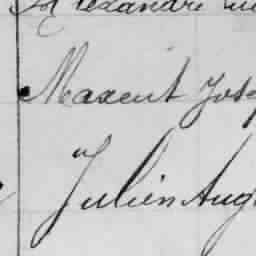 Alexandre
Maxent Jos
Julien Aug